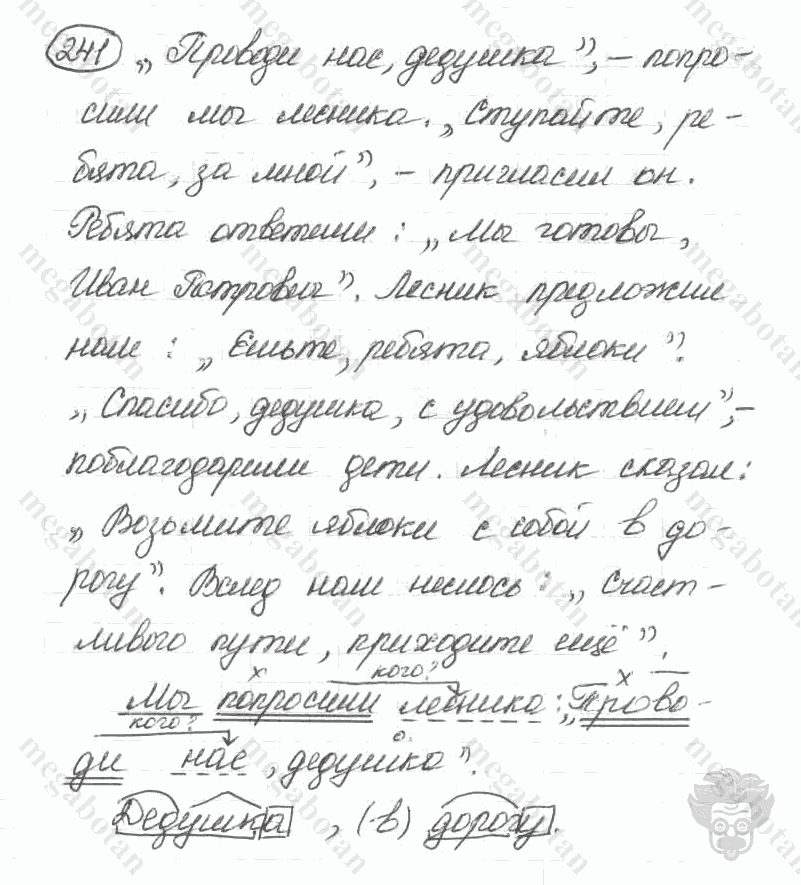 241 „Проводи нас, дедушка”, – попро-
сили мы лесника. „Ступайте, ре-
бята, за мной”, – пригласил он.
Ребята ответили: „Мы готовы,
Иван Петрович”. Лесник предложил
нам: „Ешьте, ребята, яблоки”.
„Спасибо, дедушка, с удовольствием”, –
поблагодарили дети. Лесник сказал:
„Возьмите яблоки с собой в до-
рогу”. Вслед нам неслось: „Счаст-
ливого пути, приходите ещё”.
х кого? х
Мы попросили лесника: „Прово-
кого? о
ди нас, дедушка”.
Дедушка, (в) дорогу.
megabotan